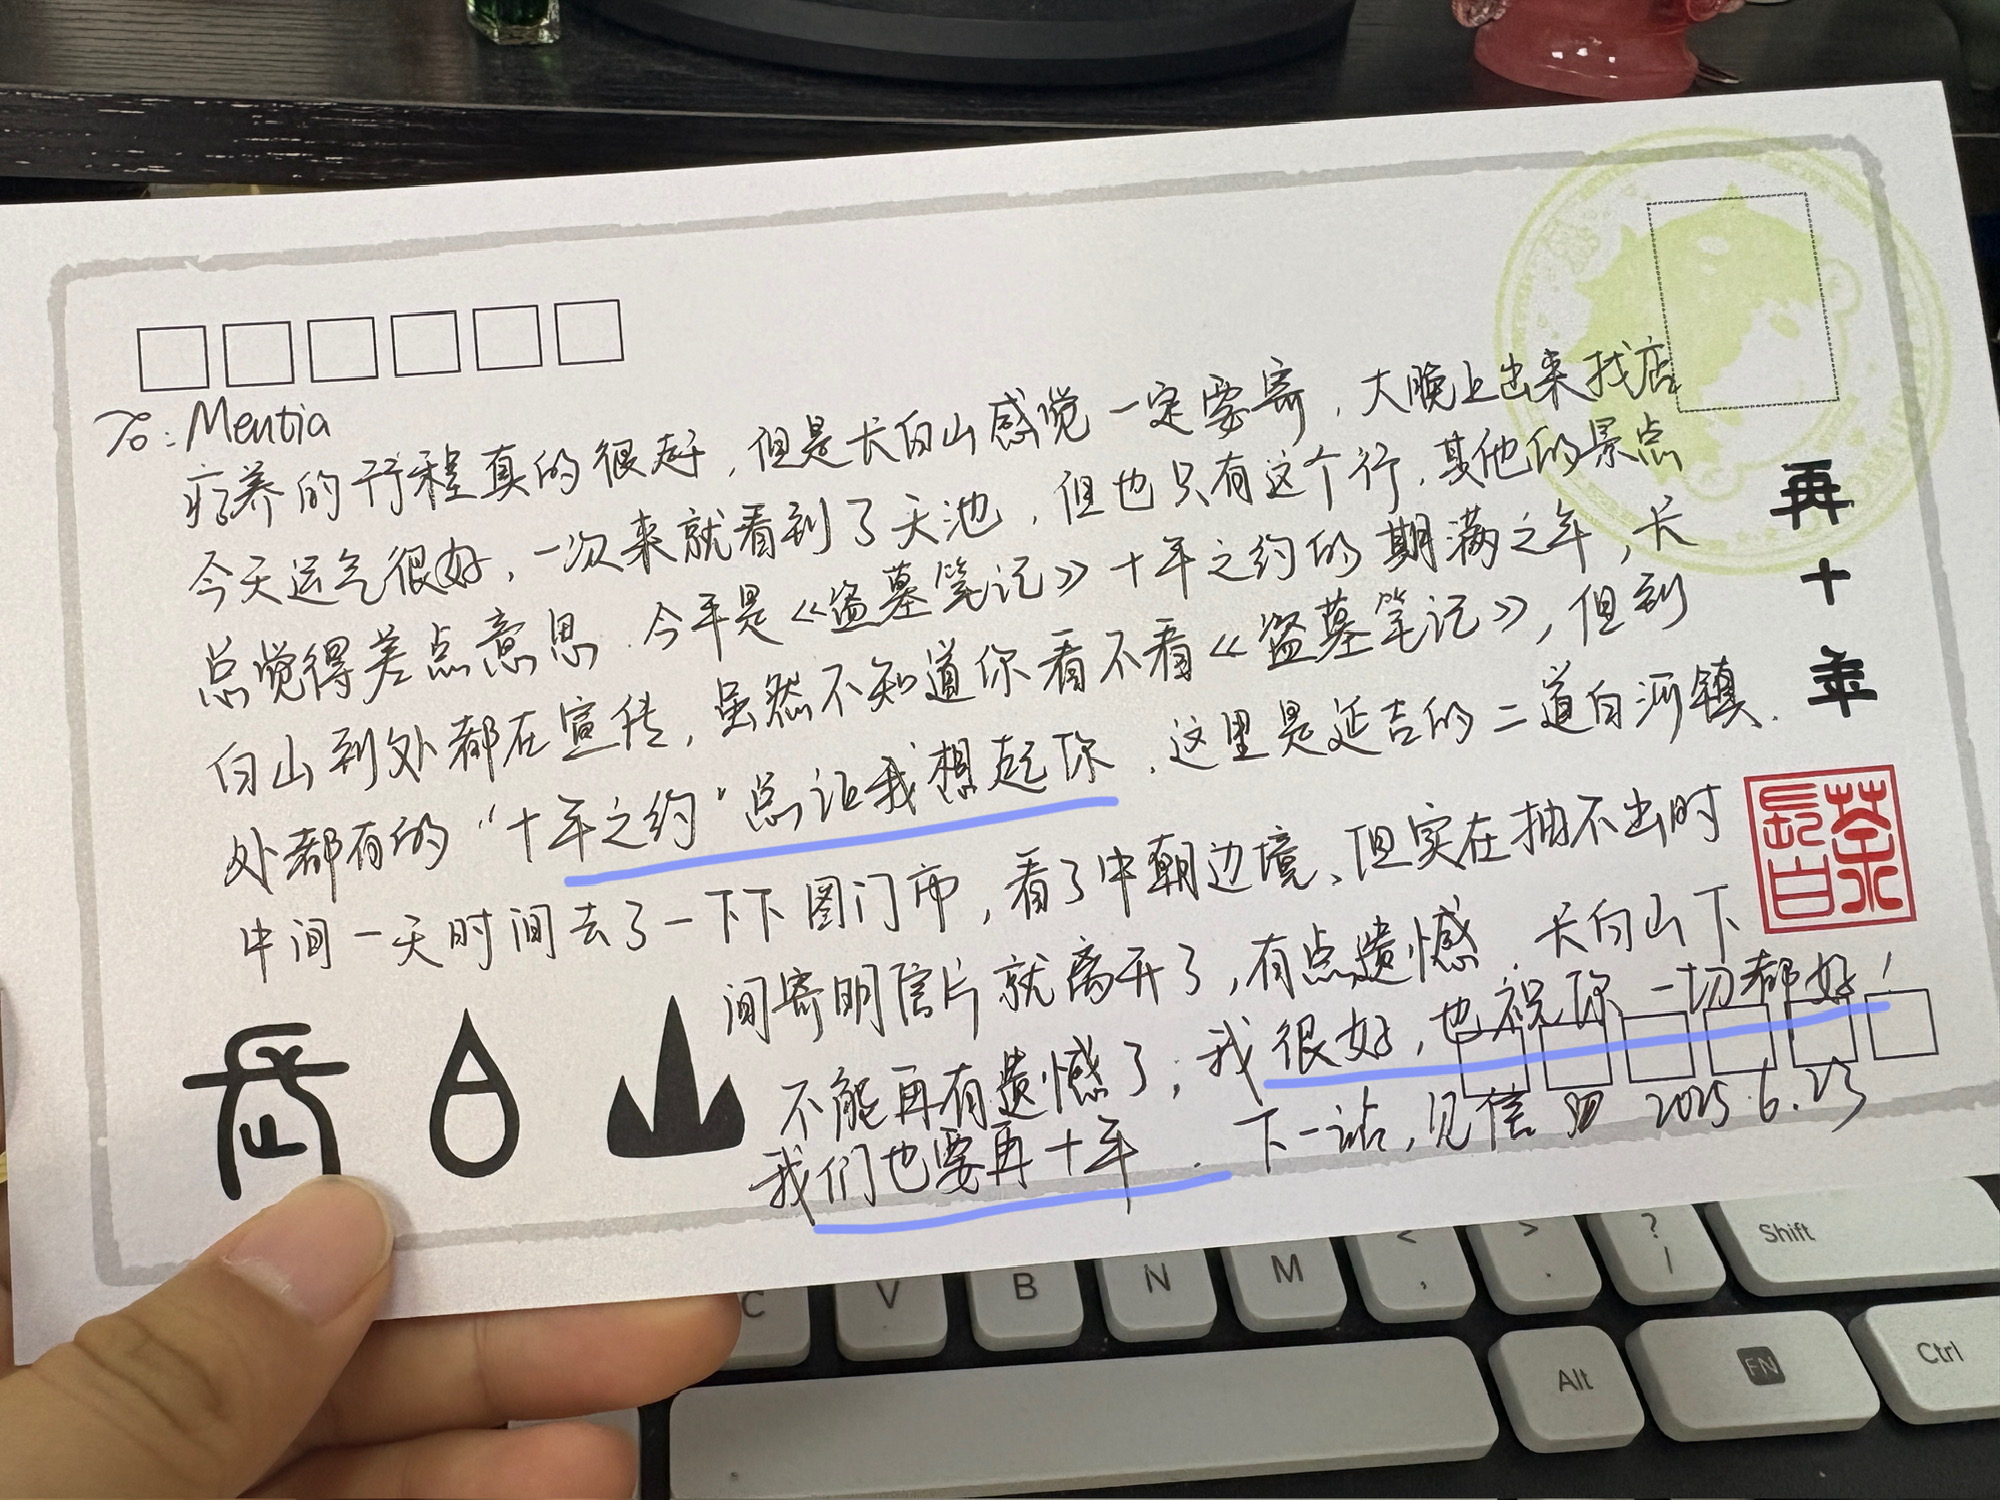 To: Mentia
疗养的行程真的很赶，但是长白山感觉一定要寄，大晚上出来找店
今天运气很好，一次来就看到了天池，但也只有这个行，其他的景点
总觉得差点意思．今年是《盗墓笔记》十年之约的期满之年，长
白山到处都在宣传，虽然不知道你看不看《盗墓笔记》，但到
处都有的“十年之约”总让我想起你．这里是延吉的二道白河镇．
中间一天时间去了一下下图们市，看了中朝边境、但实在抽不出时
间寄明信片就离开了，有点遗憾．长白山下
不能再有遗憾了，我很好，也祝你一切都好！
我们也要再十年．下一站，见信 2025.6.23
再十年
長白茶
长白山
C V B N M < , > . ? / Shift
Alt FN Ctrl